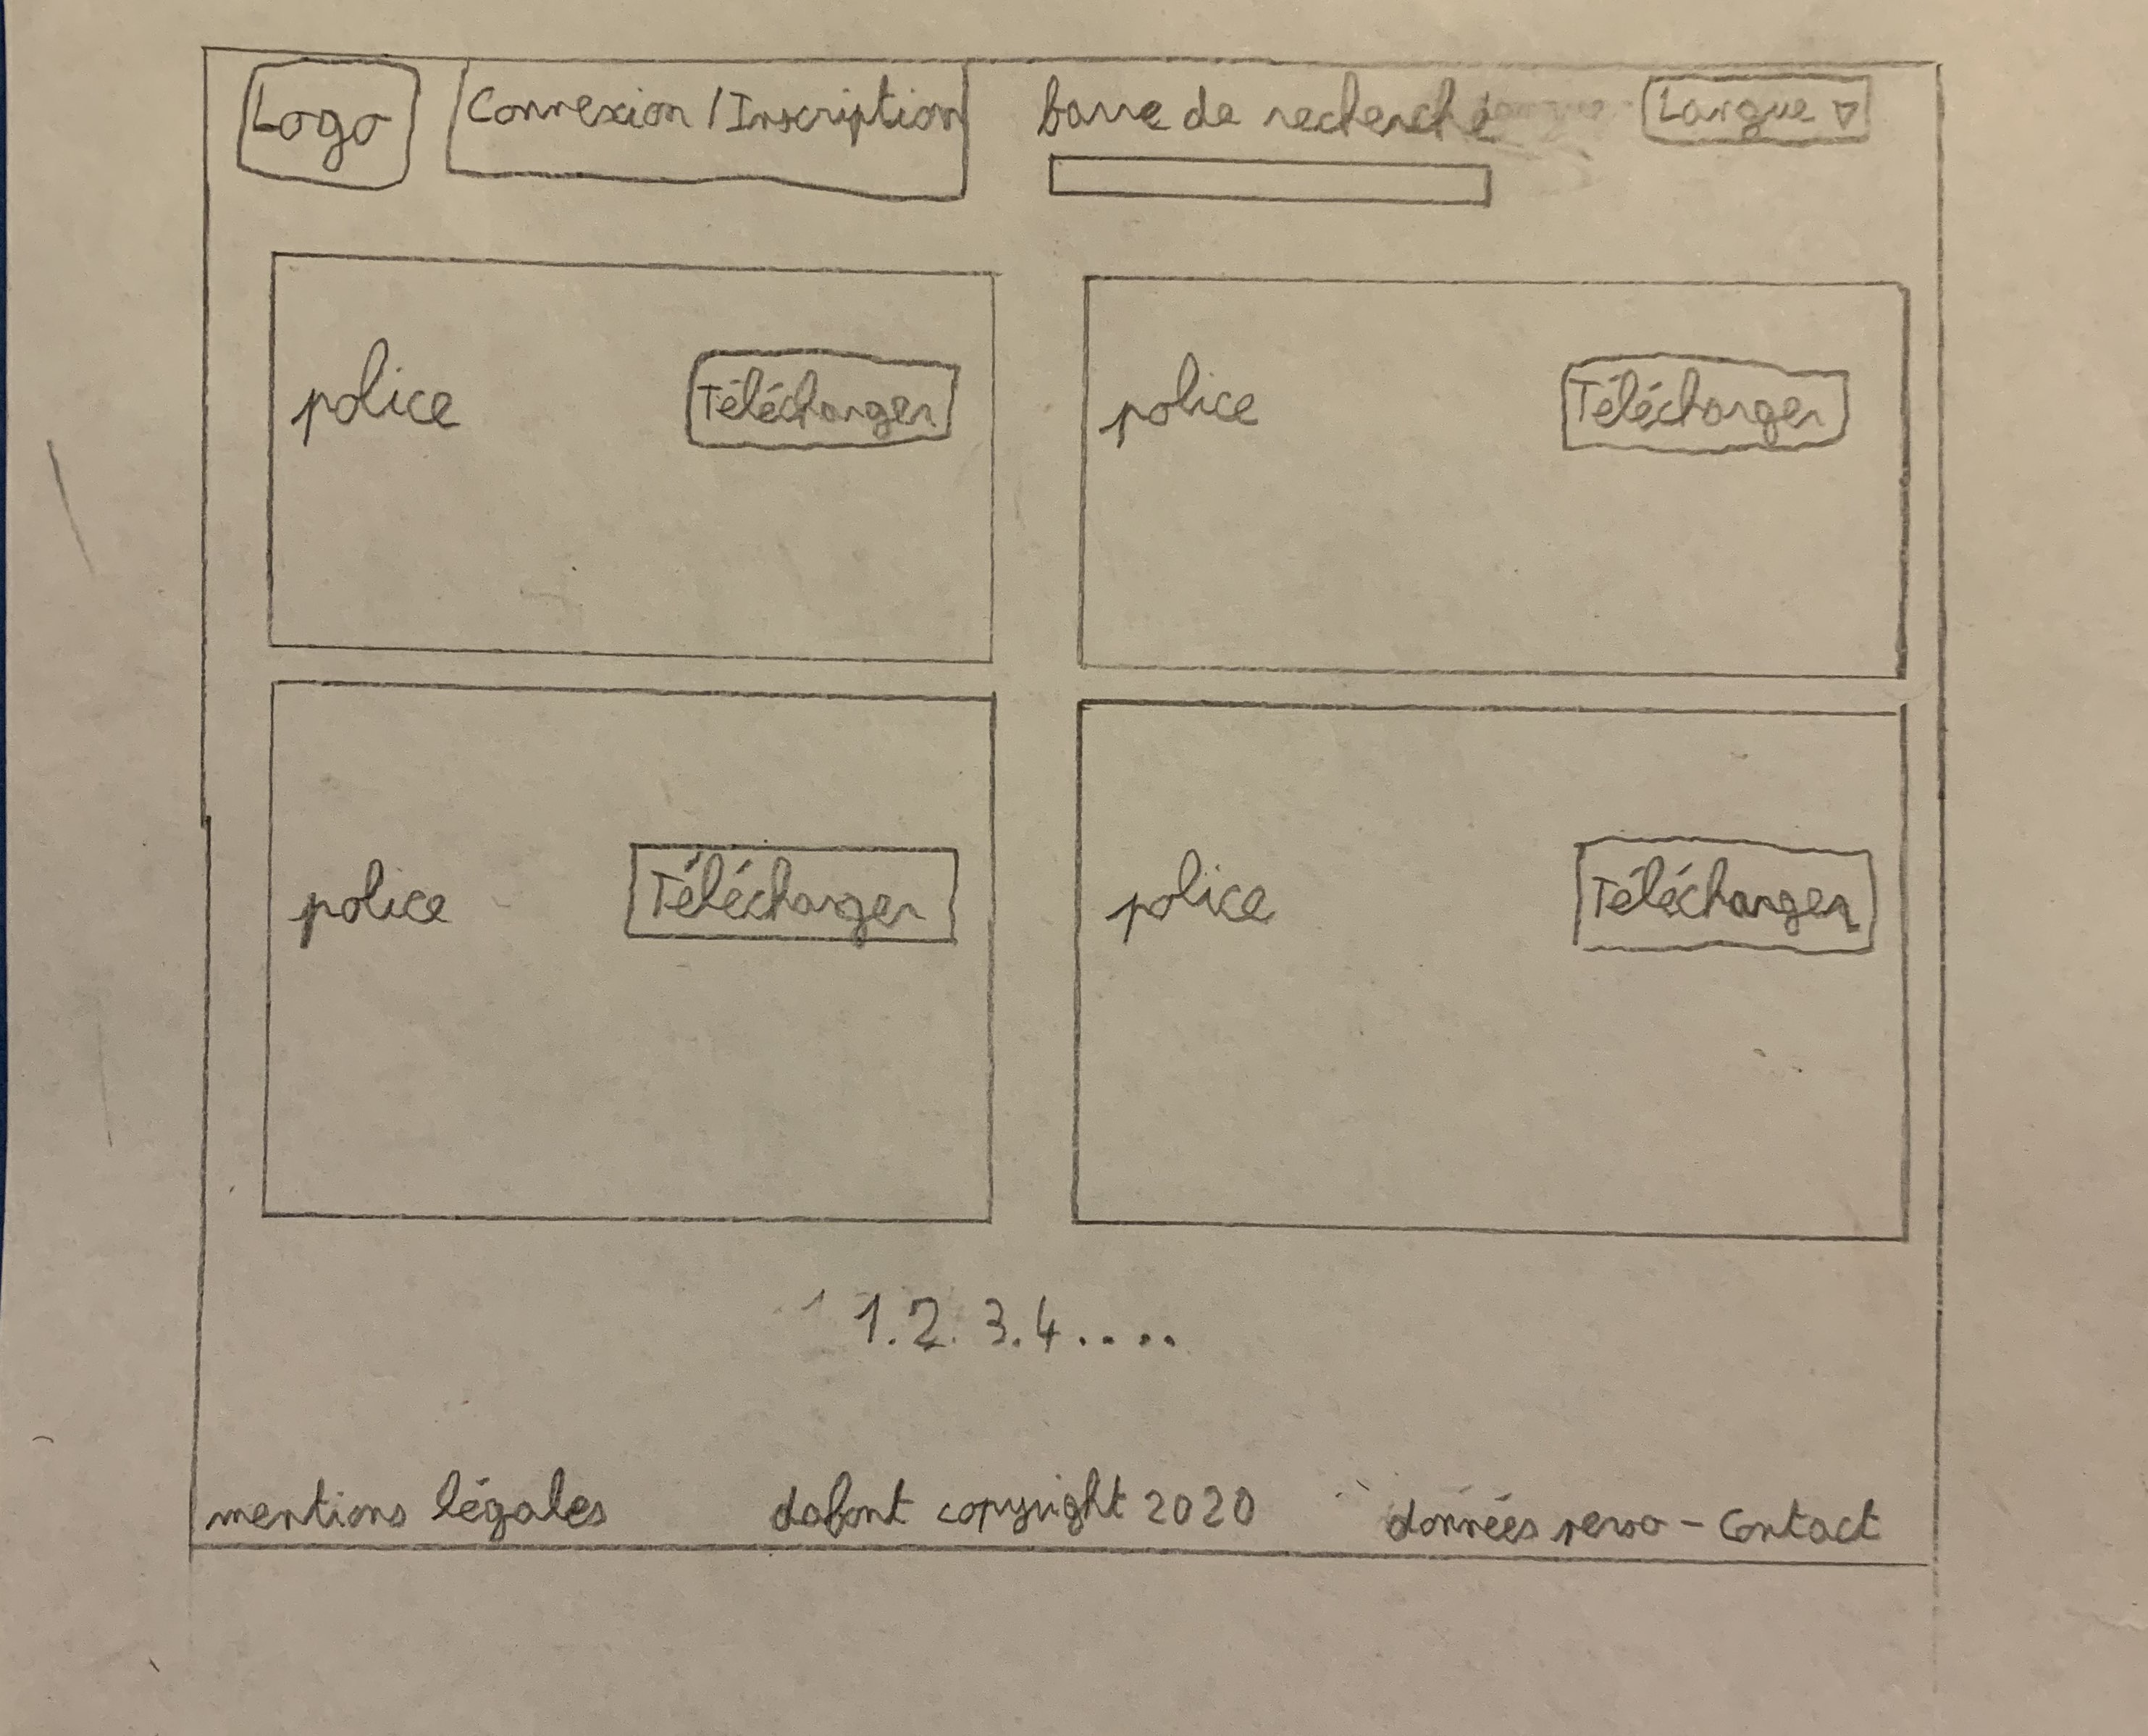 Logo
Connexion / Inscription
barre de recherche
Langue ▽
police
Télécharger
police
Télécharger
police
Télécharger
police
Télécharger
1.2.3.4....
mentions légales
dafont copyright 2020
données perso - Contact